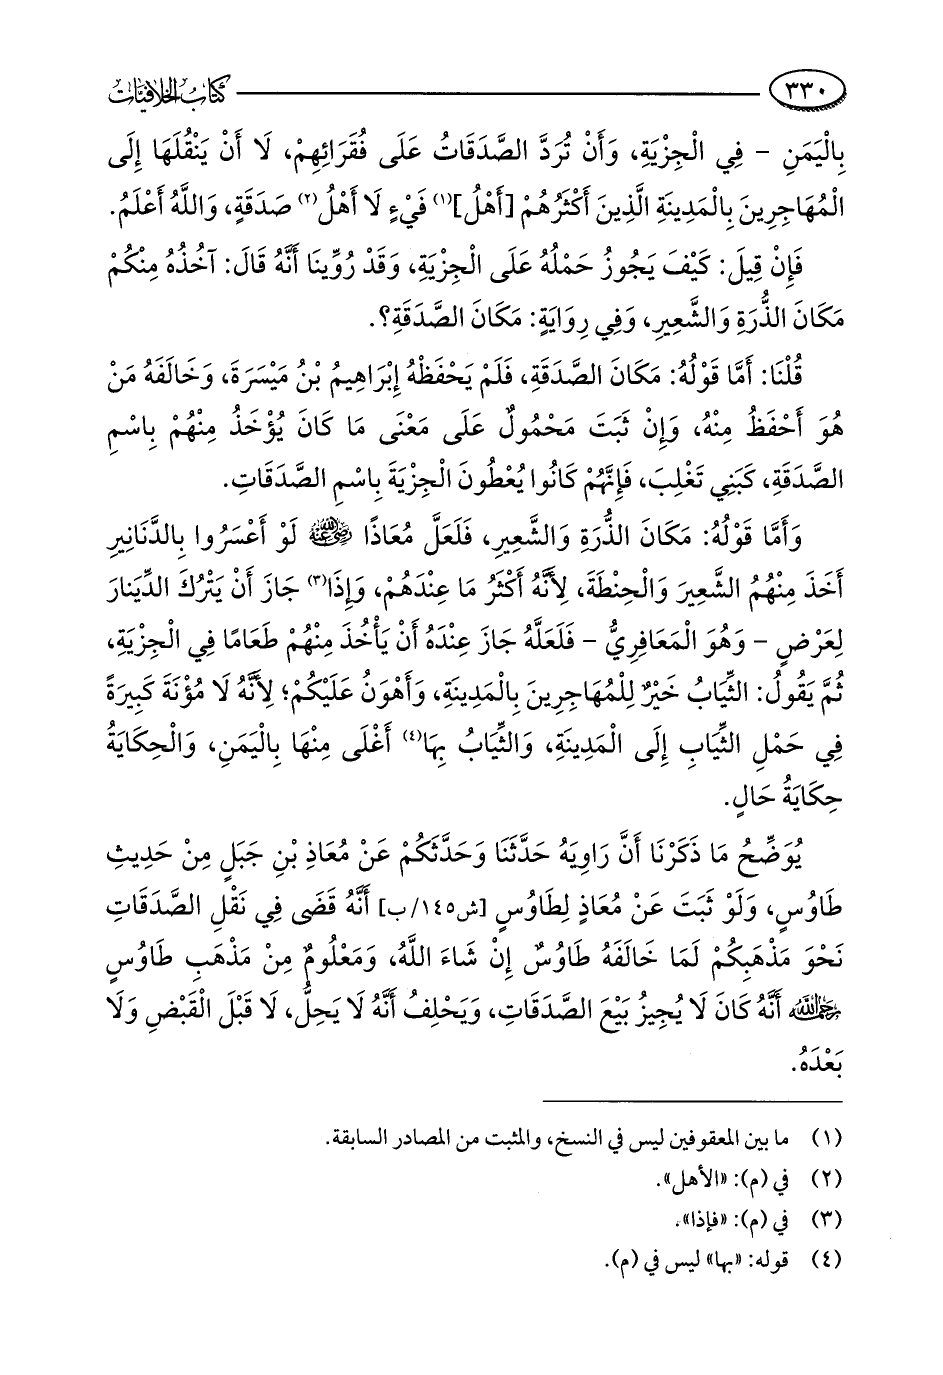 ٣٣٠ كتاب الخلافيات
بِالْيَمَنِ - فِي الْجِزْيَةِ، وَأَنْ تُرَدَّ الصَّدَقَاتُ عَلَى فُقَرَائِهِمْ، لَا أَنْ يَنْقُلَهَا إِلَى
الْمُهَاجِرِينَ بِالْمَدِينَةِ الَّذِينَ أَكْثَرُهُمْ [أَهْلُ](١) فَيْءٍ لَا أَهْلُ(٢) صَدَقَةٍ، وَاللَّهُ أَعْلَمُ.
فَإِنْ قِيلَ: كَيْفَ يَجُوزُ حَمْلُهُ عَلَى الْجِزْيَةِ، وَقَدْ رُوِّينَا أَنَّهُ قَالَ: آخُذُهُ مِنْكُمْ
مَكَانَ الذُّرَةِ وَالشَّعِيرِ، وَفِي رِوَايَةٍ: مَكَانَ الصَّدَقَةِ؟.
قُلْنَا: أَمَّا قَوْلُهُ: مَكَانَ الصَّدَقَةِ، فَلَمْ يَحْفَظْهُ إِبْرَاهِيمُ بْنُ مَيْسَرَةَ، وَخَالَفَهُ مَنْ
هُوَ أَحْفَظُ مِنْهُ، وَإِنْ ثَبَتَ مَحْمُولٌ عَلَى مَعْنَى مَا كَانَ يُؤْخَذُ مِنْهُمْ بِاسْمِ
الصَّدَقَةِ، كَبَنِي تَغْلِبَ، فَإِنَّهُمْ كَانُوا يُعْطُونَ الْجِزْيَةَ بِاسْمِ الصَّدَقَاتِ.
وَأَمَّا قَوْلُهُ: مَكَانَ الذُّرَةِ وَالشَّعِيرِ، فَلَعَلَّ مُعَاذًا رضي الله عنه لَوْ أَعْسَرُوا بِالدَّنَانِيرِ
أَخَذَ مِنْهُمُ الشَّعِيرَ وَالْحِنْطَةَ، لِأَنَّهُ أَكْثَرُ مَا عِنْدَهُمْ، وَإِذَا(٣) جَازَ أَنْ يَتْرُكَ الدِّينَارَ
لِعَرْضٍ - وَهُوَ الْمَعَافِرِيُّ - فَلَعَلَّهُ جَازَ عِنْدَهُ أَنْ يَأْخُذَ مِنْهُمْ طَعَامًا فِي الْجِزْيَةِ،
ثُمَّ يَقُولُ: الثِّيَابُ خَيْرٌ لِلْمُهَاجِرِينَ بِالْمَدِينَةِ، وَأَهْوَنُ عَلَيْكُمْ؛ لِأَنَّهُ لَا مُؤْنَةَ كَبِيرَةً
فِي حَمْلِ الثِّيَابِ إِلَى الْمَدِينَةِ، وَالثِّيَابُ بِهَا(٤) أَغْلَى مِنْهَا بِالْيَمَنِ، وَالْحِكَايَةُ
حِكَايَةُ حَالٍ.
يُوَضِّحُ مَا ذَكَرْنَا أَنَّ رَاوِيَهُ حَدَّثَنَا وَحَدَّثَكُمْ عَنْ مُعَاذِ بْنِ جَبَلٍ مِنْ حَدِيثِ
طَاوُسٍ، وَلَوْ ثَبَتَ عَنْ مُعَاذٍ لِطَاوُسٍ [ش١٤٥/ب] أَنَّهُ قَضَى فِي نَقْلِ الصَّدَقَاتِ
نَحْوَ مَذْهَبِكُمْ لَمَا خَالَفَهُ طَاوُسٌ إِنْ شَاءَ اللَّهُ، وَمَعْلُومٌ مِنْ مَذْهَبِ طَاوُسٍ
رحمه الله أَنَّهُ كَانَ لَا يُجِيزُ بَيْعَ الصَّدَقَاتِ، وَيَحْلِفُ أَنَّهُ لَا يَحِلُّ، لَا قَبْلَ الْقَبْضِ وَلَا
بَعْدَهُ.
(١) ما بين المعقوفين ليس في النسخ، والمثبت من المصادر السابقة.
(٢) في (م): «الأهل».
(٣) في (م): «فإذا».
(٤) قوله: «بها» ليس في (م).